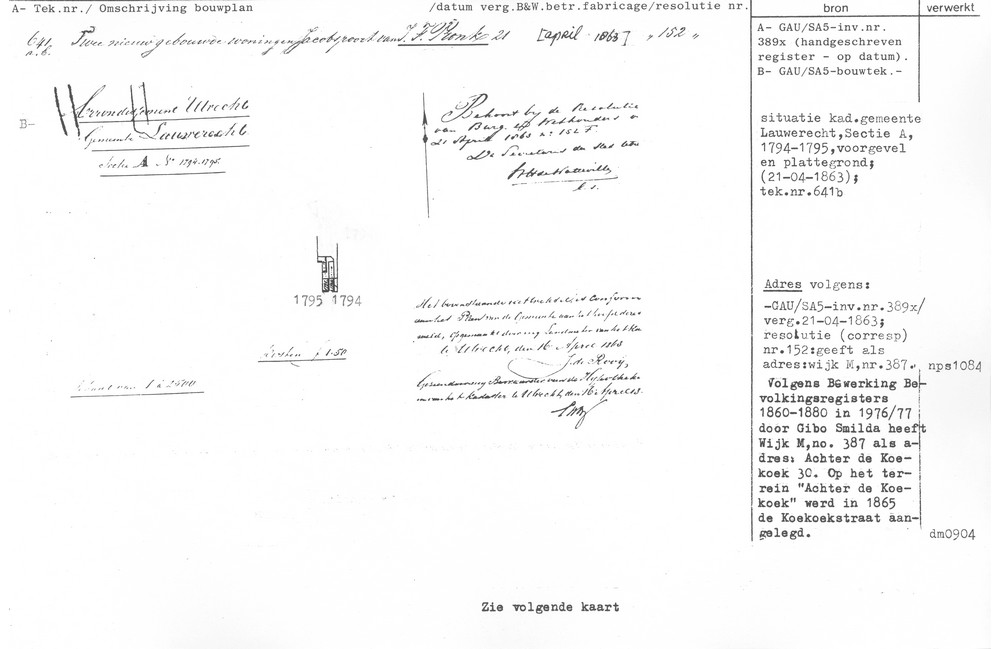 A- Tek.nr./ Omschrijving bouwplan /datum verg.B&W.betr.fabricage/resolutie nr. bron verwerkt
641 a.b. Twee nieuw gebouwde woningen Jacobspoort van J. F. Plonk 21 [april 1863] „ 152 „
A- GAU/SA5-inv.nr.
389x (handgeschreven
register - op datum).
B- GAU/SA5-bouwtek.-
B-
Arrondissement Utrecht
Gemeente Lauwerecht
Sectie A No 1794.1795.
Behoort bij de Resolutie
van Burg. en Wethouders v
21 April 1863 No 152 F.
De Secretaris der Stad
l. s.
situatie kad.gemeente
Lauwerecht,Sectie A,
1794-1795,voorgevel
en plattegrond;
(21-04-1863);
tek.nr.641b
1795 1794
Kosten f 1.50
Schaal van 1 à 2500
Het bovenstaande uittreksel is Conform
aan het Plan van de Gemeente
te Utrecht, den 16 April 1863
J. de Rooij,
Gezien door mij Bewaarder van de Hypotheken
en van het Kadaster te Utrecht, den 16 April 63.
Adres volgens:
-GAU/SA5-inv.nr.389x/
verg.21-04-1863;
resolutie (corresp)
nr.152:geeft als
adres:wijk M,nr.387. nps1084
Volgens Bewerking Be-
volkingsregisters
1860-1880 in 1976/77
door Gibo Smilda heeft
Wijk M,no. 387 als a-
dres: Achter de Koe-
koek 30. Op het ter-
rein "Achter de Koe-
koek" werd in 1865
de Koekoekstraat aan-
gelegd. dm0904
Zie volgende kaart